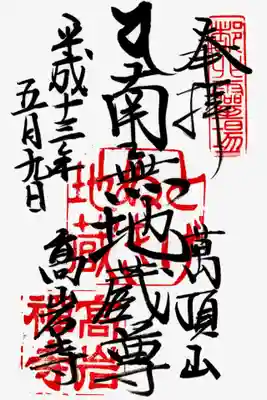 奉拝
萬頂山
南無地蔵尊
平成十三年
五月九日
高岩寺
地蔵
高岩
禅寺